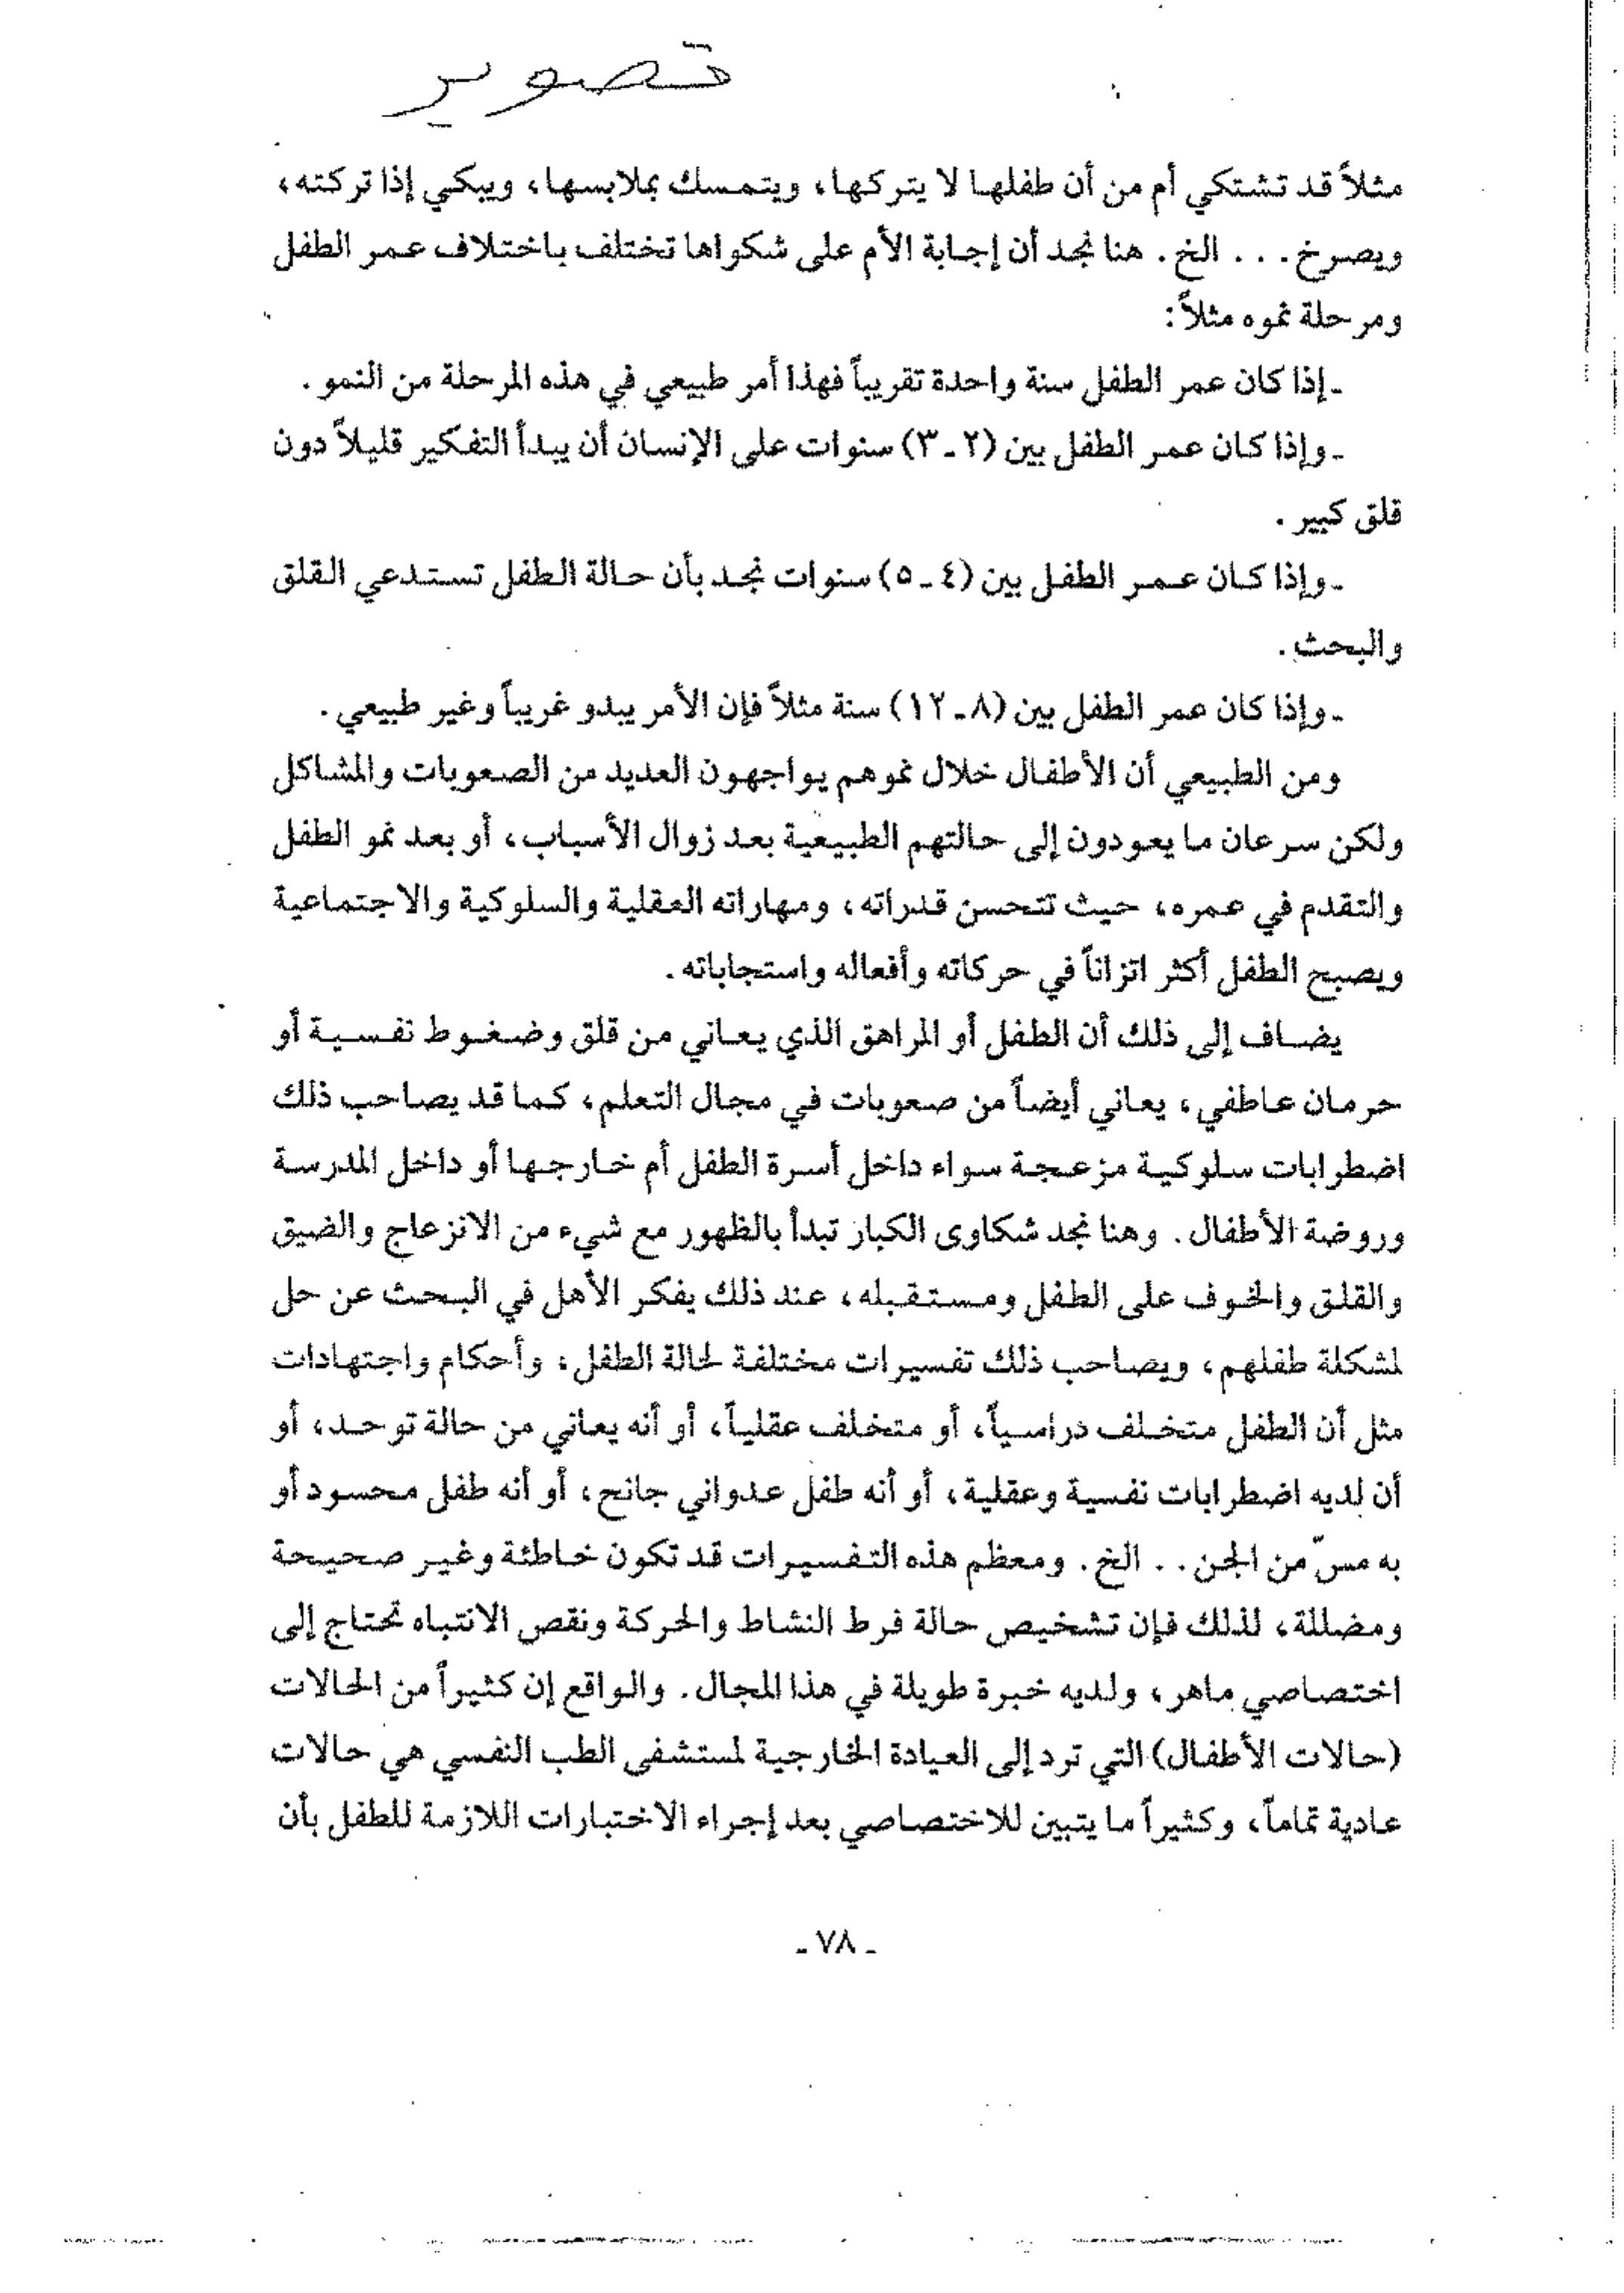 تصوير
مثلاً قد تشتكي أم من أن طفلها لا يتركها، ويتمسك بملابسها، ويبكي إذا تركته،
ويصرخ . . . الخ. هنا نجد أن إجابة الأم على شكواها تختلف باختلاف عمر الطفل
ومرحلة نموه مثلاً:
ـ إذا كان عمر الطفل سنة واحدة تقريباً فهذا أمر طبيعي في هذه المرحلة من النمو.
ـ وإذا كان عمر الطفل بين (٢ـ٣) سنوات على الإنسان أن يبدأ التفكير قليلاً دون
قلق كبير.
ـ وإذا كان عمر الطفل بين (٤ـ٥) سنوات نجد بأن حالة الطفل تستدعي القلق
والبحث.
ـ وإذا كان عمر الطفل بين (٨ـ١٢) سنة مثلاً فإن الأمر يبدو غريباً وغير طبيعي.
ومن الطبيعي أن الأطفال خلال نموهم يواجهون العديد من الصعوبات والمشاكل
ولكن سرعان ما يعودون إلى حالتهم الطبيعية بعد زوال الأسباب، أو بعد نمو الطفل
والتقدم في عمره، حيث تتحسن قدراته، ومهاراته العقلية والسلوكية والاجتماعية
ويصبح الطفل أكثر اتزاناً في حركاته وأفعاله واستجاباته.
يضاف إلى ذلك أن الطفل أو المراهق الذي يعاني من قلق وضغوط نفسية أو
حرمان عاطفي، يعاني أيضاً من صعوبات في مجال التعلم، كما قد يصاحب ذلك
اضطرابات سلوكية مزعجة سواء داخل أسرة الطفل أم خارجها أو داخل المدرسة
وروضة الأطفال. وهنا نجد شكاوى الكبار تبدأ بالظهور مع شيء من الانزعاج والضيق
والقلق والخوف على الطفل ومستقبله، عند ذلك يفكر الأهل في البحث عن حل
لمشكلة طفلهم، ويصاحب ذلك تفسيرات مختلفة لحالة الطفل، وأحكام واجتهادات
مثل أن الطفل متخلف دراسياً، أو متخلف عقلياً، أو أنه يعاني من حالة توحد، أو
أن لديه اضطرابات نفسية وعقلية، أو أنه طفل عدواني جانح، أو أنه طفل محسود أو
به مسّ من الجن . . الخ. ومعظم هذه التفسيرات قد تكون خاطئة وغير صحيحة
ومضللة، لذلك فإن تشخيص حالة فرط النشاط والحركة ونقص الانتباه تحتاج إلى
اختصاصي ماهر، ولديه خبرة طويلة في هذا المجال. والواقع إن كثيراً من الحالات
(حالات الأطفال) التي ترد إلى العيادة الخارجية لمستشفى الطب النفسي هي حالات
عادية تماماً، وكثيراً ما يتبين للاختصاصي بعد إجراء الاختبارات اللازمة للطفل بأن
ـ ٧٨ ـ